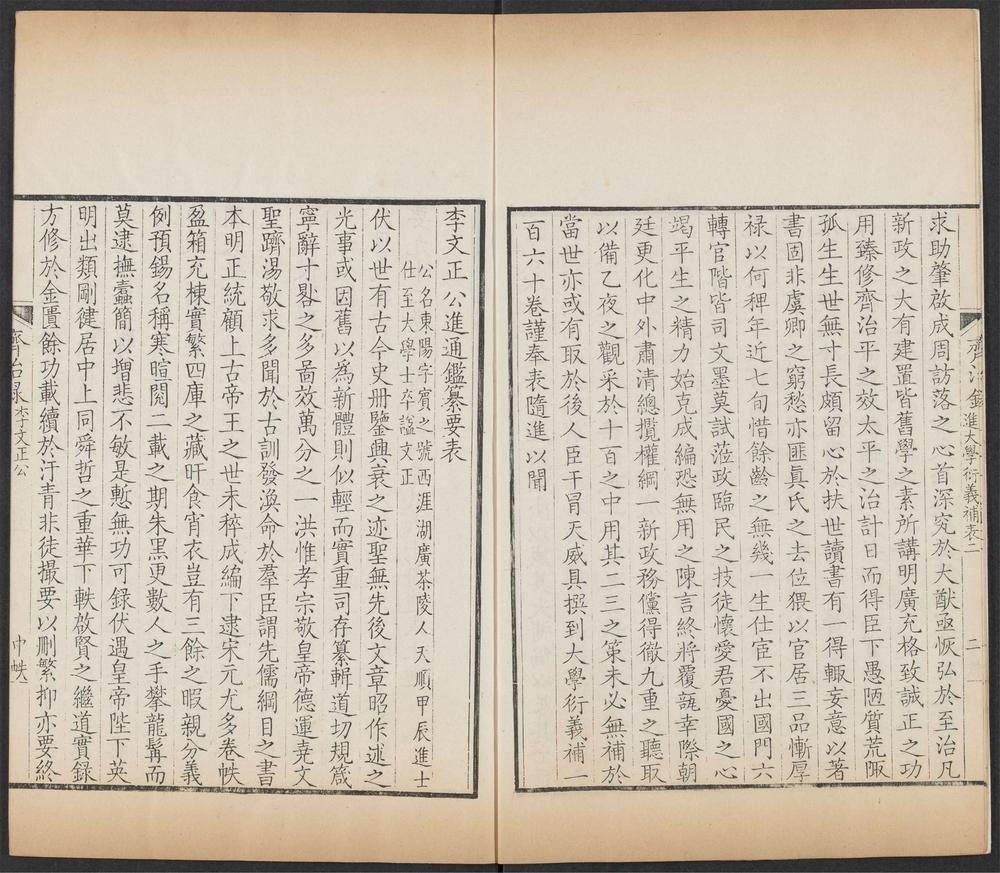 齊治錄 進大學衍義補表二 二
求助肇啟成周訪落之心首深究於大猷亟恢弘於至治凡
新政之大有建置皆舊學之素所講明廣充格致誠正之功
用臻修齊治平之效太平之治計日而得臣下愚陋質荒陬
孤生生世無寸長頗留心於扶世讀書有一得輒妄意以著
書固非虞卿之窮愁亦匪真氏之去位猥以官居三品慚厚
祿以何稗年近七旬惜餘齡之無幾一生仕宦不出國門六
轉官階皆司文墨莫試蒞政臨民之技徒懷愛君憂國之心
竭平生之精力始克成編恐無用之陳言終將覆瓿幸際朝
廷更化中外肅清總攬權綱一新政務儻得徹九重之聽取
以備乙夜之觀采於十百之中用其二三之策未必無補於
當世亦或有取於後人臣干冒天威具撰到大學衍義補一
百六十卷謹奉表隨進以聞
李文正公進通鑑纂要表
公名東陽字賓之號西涯湖廣茶陵人天順甲辰進士
仕至大學士卒諡文正
伏以世有古今史册鑒興衰之迹聖無先後文章昭作述之
光事或因舊以為新體則似輕而實重司存纂輯道切規箴
寧辭寸晷之多啚效萬分之一洪惟孝宗敬皇帝德運堯文
聖躋湯敬求多聞於古訓發渙命於羣臣謂先儒綱目之書
本明正統顧上古帝王之世未稡成編下逮宋元尤多卷帙
盈箱充棟實繁四庫之藏旰食宵衣豈有三餘之暇親分義
例預錫名稱寒暄閱二載之期朱黑更數人之手攀龍髯而
莫逮撫蠹簡以增悲不敏是慙無功可錄伏遇皇帝陛下英
明出類剛健居中上同舜哲之重華下軼啟賢之繼道實錄
方修於金匱餘功載續於汗青非徒撮要以刪繁抑亦要終
齊治錄 李文正公 中帙